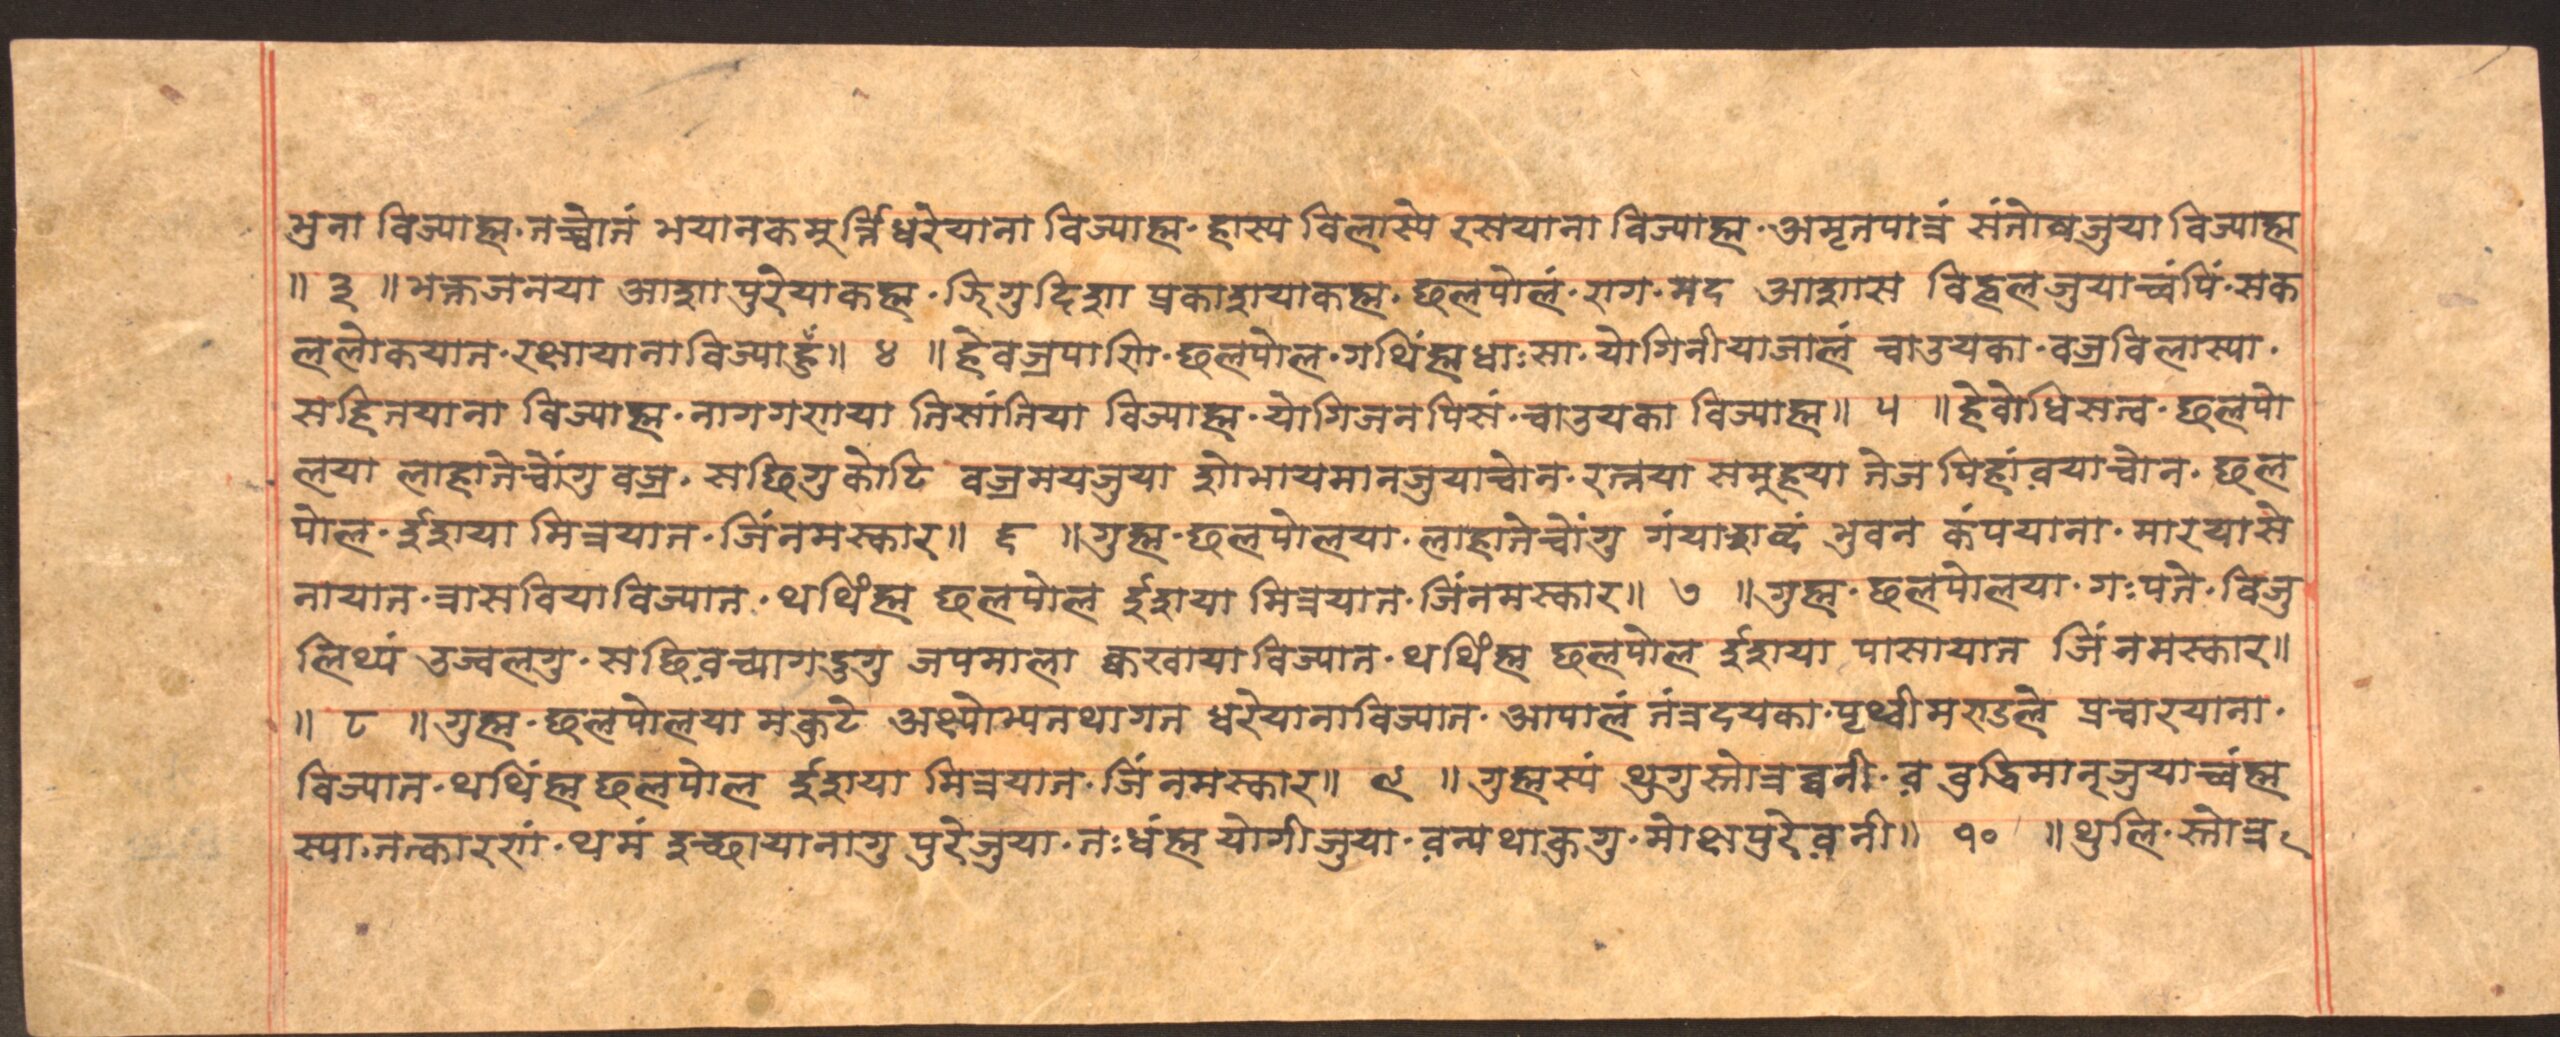 भुना विज्याह्म·तच्चोतं भयानकमुर्त्तिधरेयाना विज्याह्म·हास्य विलास्ये रसयाना विज्याह्म·अमृतपात्रं संतोषजुया विज्याह्म
॥ ३ ॥भक्तजनया आशा पुरेयाकह्म·झिगुदिशा प्रकाशयाकह्म·छलपोलं·राग·मद आशास विह्वलजुयाच्वंपिं·सक
ललोकयात·रक्षायानाविज्याहुँ॥ ४ ॥हेवज्रपाणि·छलपोल·गथिंह्मधाःसा·योगिनीयाजालं चाउयका·वज्रविलास्या·
सहितयाना विज्याह्म·नागगणया तिसांतिया विज्याह्म·योगिजनपिसं·चाउयका विज्याह्म॥ ५ ॥हेवोधिसत्व·छलपो
लया लाहातेच्वोंगु वज्र·सछिगुकोटि वज्रमयजुया शोभायमानजुयाच्वोन·रत्नया समूहया तेज पिहांवयाच्वोन·छल
पोल·र्इशया मित्रयात·जिंनमस्कार॥ ६ ॥गुह्म·छलपोलया·लाहातेच्वोंगु गंयाशब्दं भुवन कंपयाना·मारयासे
नायात·त्रासवियाविज्यात·थथिंह्म छलपोल र्इशया मित्रयात·जिंनमस्कार॥ ७ ॥गुह्म·छलपोलया·गःपते·विजु
लिथ्यं उज्वलगु·सछिवच्यागडुगु जपमाला क्वखायाविज्यात·थथिंह्म छलपोल र्इशया पासायात जिंनमस्कार॥
॥ ८ ॥गुह्म·छलपोलया मकुटे अक्ष्योभ्यतथागत धरेयानाविज्यात·आपालं तंत्रदयका·पृथ्वीमण्डले प्रचारयाना·
विज्यात·थथिंह्म छलपोल र्इशया मित्रयात·जिंनमस्कार॥ ९ ॥ गुह्मस्यं थुगुस्तोत्र ब्वनी·व बुद्धिमान्जुयाच्वंह्म
स्या·तत्कारणं·थमं इच्छायानागु पुरेजुया·तःधंह्म योगीजुया·वन्यथाकुगु·मोक्षपुरेवनी॥ १० ॥थुलि·स्तोत्र